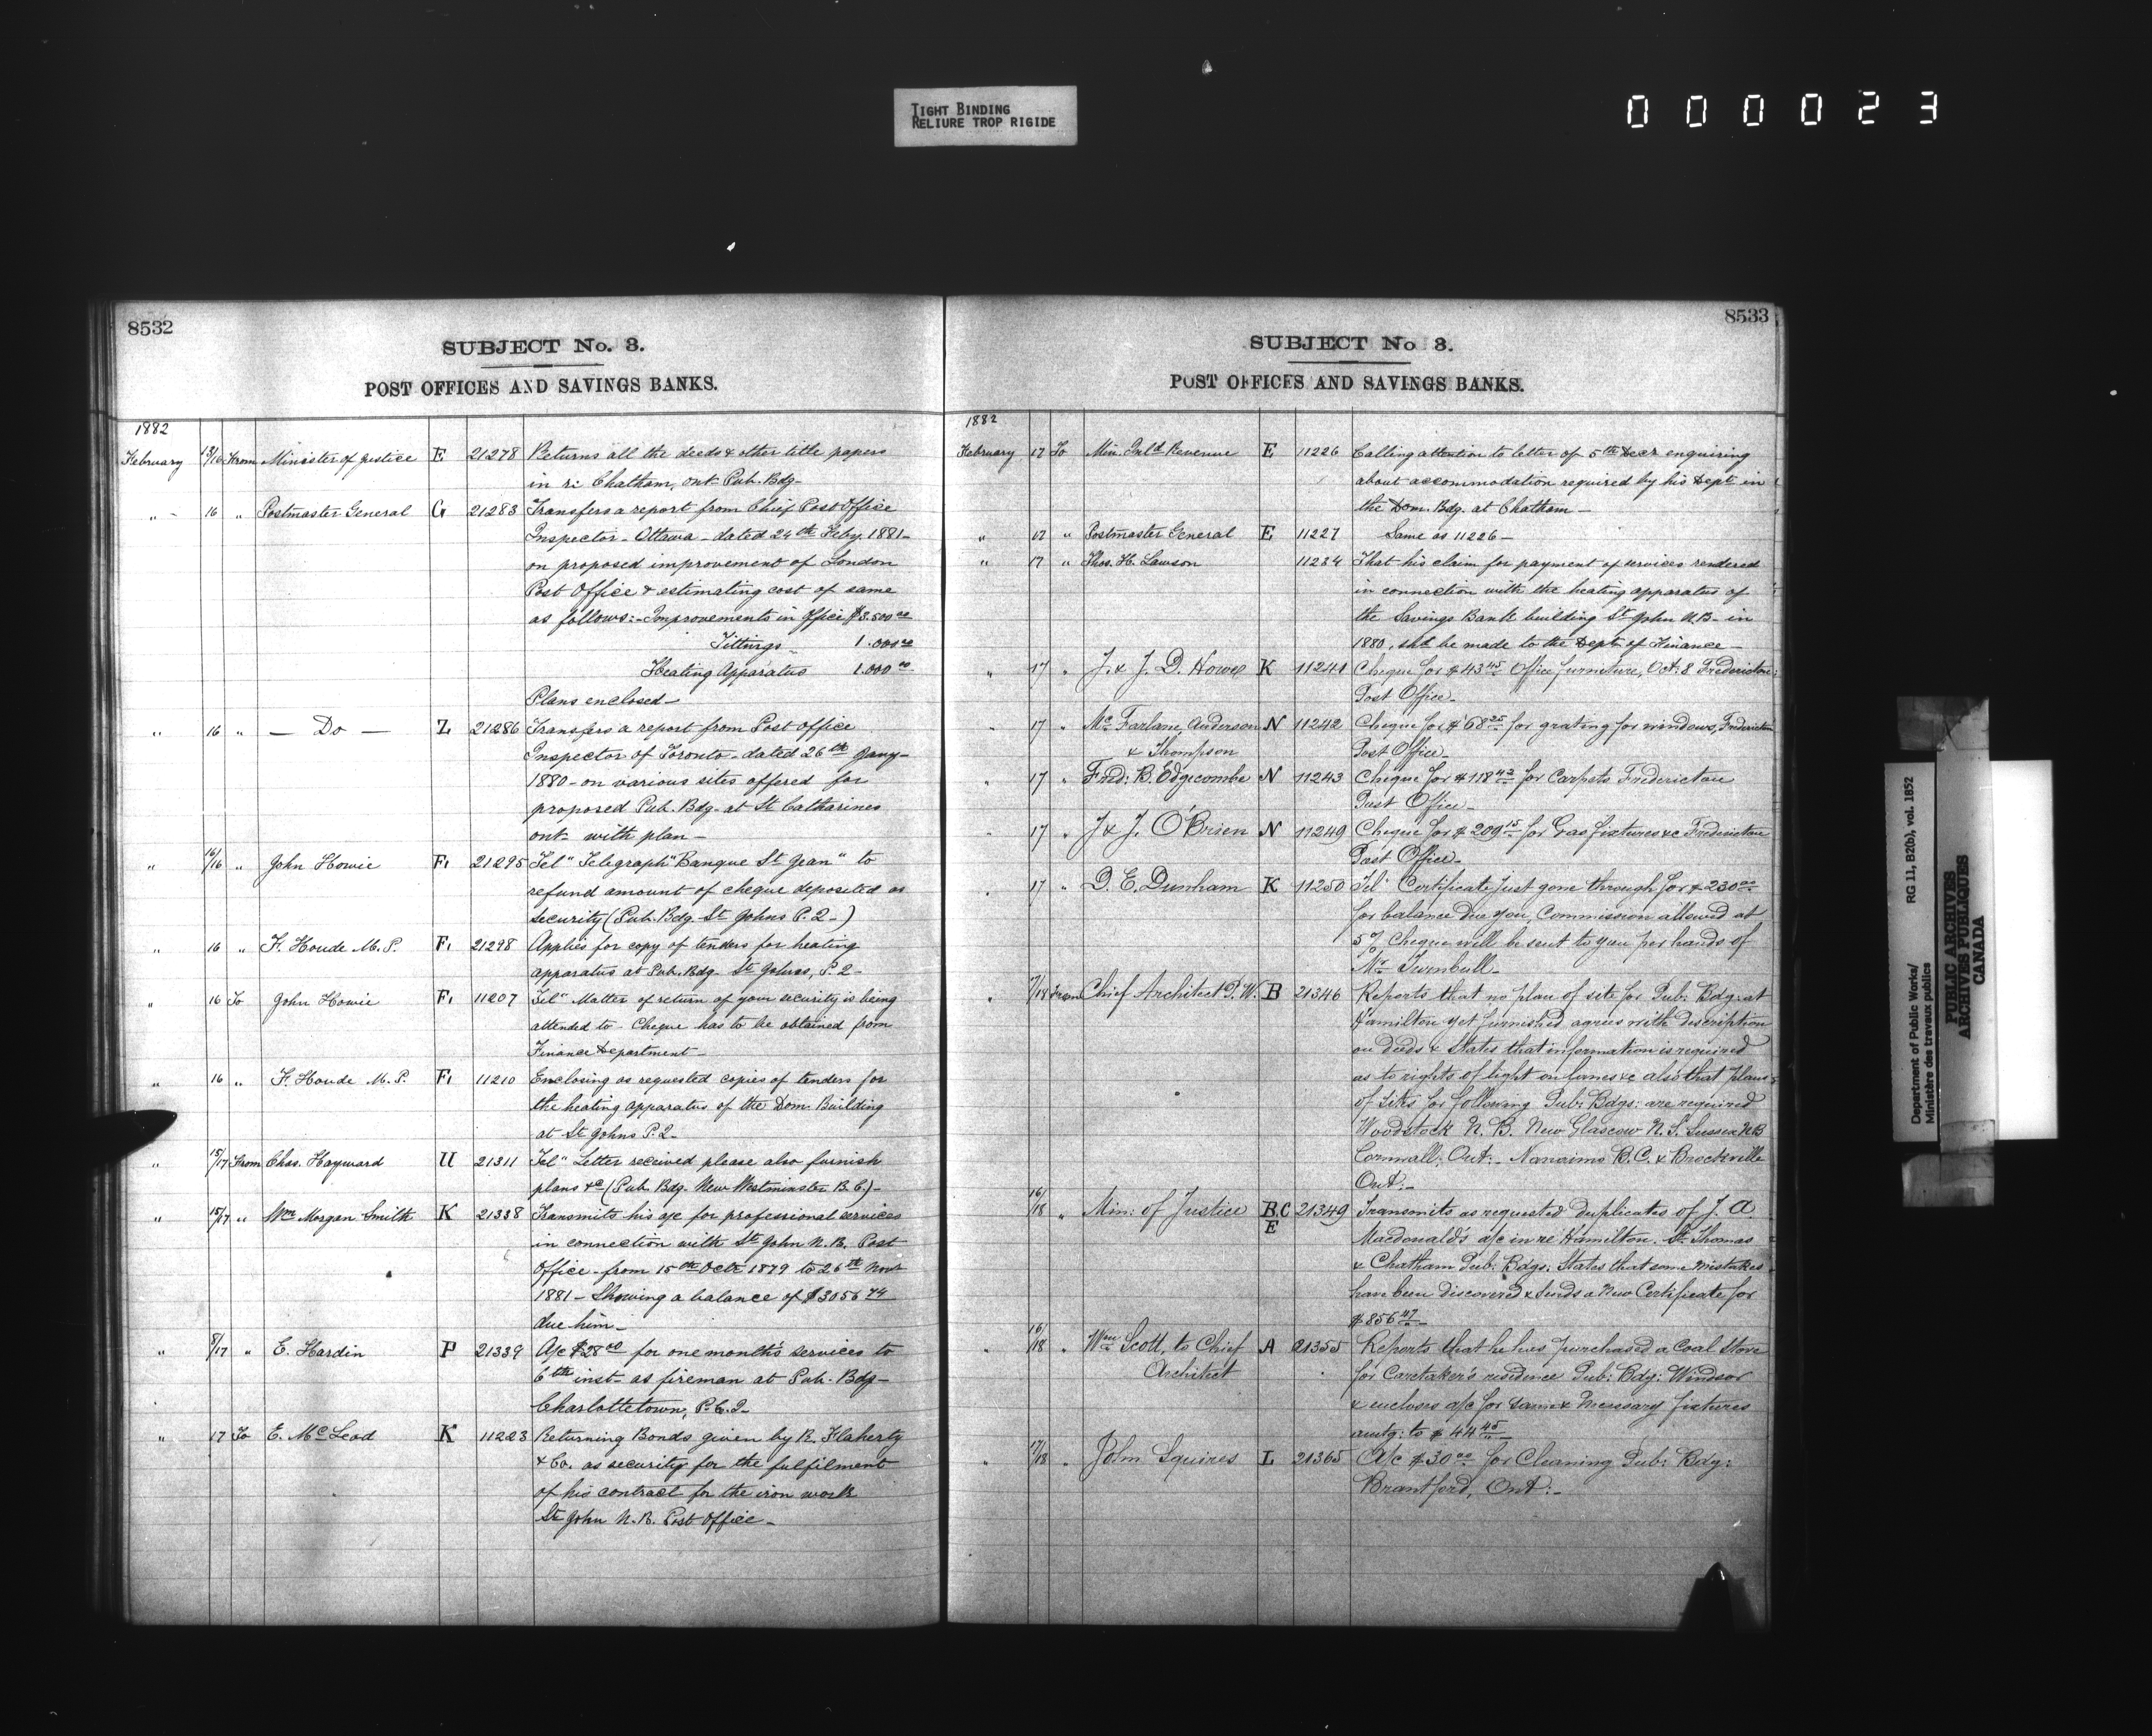 TIGHT BINDING
RELIURE TROP RIGIDE
000023
8532
SUBJECT No. 3.
POST OFFICES AND SAVINGS BANKS.
1882
February 13/16 From Minister of Justice E 21278 Returns all the deeds & other title papers
in re Chatham, Ont. Pub. Bdg-
" 16 " Postmaster General G 21283 Transfers a report from Chief Post Office
Inspector - Ottawa - dated 24th Feby. 1881-
on proposed improvement of London
Post Office & estimating cost of same
as follows:- Improvements in Office $3.500 00
Fittings - 1.000 00
Heating Apparatus 1.000 00
Plans enclosed-
" 16 " — Do — Z 21286 Transfers a report from Post Office
Inspector of Toronto - dated 26th Jany-
1880 - on various sites offered for
proposed Pub. Bdg. at St Catharines
Ont- with plan-
" 16/16 " John Howie F1 21295 Tel" Telegraph "Banque St Jean" to
refund amount of cheque deposited as
security (Pub. Bdg. St Johns P.2-)
" 16 " F. Houde M.P. F1 21298 Applies for copy of tenders for heating
apparatus at Pub. Bdg. St Johns, P.2-
" 16 To John Howie F1 11207 Tel" Matter of return of your security is being
attended to - Cheque has to be obtained from
Finance Department-
" 16 " F. Houde M.P. F1 11210 Enclosing as requested copies of tenders for
the heating apparatus of the Dom. Building
at St Johns P.2-
" 15/17 From Chas. Hayward U 21311 Tel" Letter received please also furnish
plans &c (Pub. Bdg. New Westminster B.C.)-
" 15/17 " Wm Morgan Smith K 21338 Transmits his a/c for professional services
in connection with St John N.B. Post
Office - from 15th Octr 1879 to 26th Novr
1881 - Showing a balance of $3056 74
due him-
" 8/17 " E. Hardin P 21339 A/c $28 00 for one month's services to
6th inst- as fireman at Pub. Bdg-
Charlottetown, P.E.I-
" 17 To E. McLeod K 11223 Returning Bonds given by R. Flaherty
& Co. as security for the fulfilment
of his contract for the iron work
St John N.B. Post Office-
8533
SUBJECT No 3.
POST OFFICES AND SAVINGS BANKS.
1882
February 17 To Min. Inld Revenue E 11226 Calling attention to letter of 5th Decr enquiring
about accommodation required by his Dept in
the Dom. Bdg. at Chatham-
" 17 " Postmaster General E 11227 Same as 11226-
" 17 " Thos. H. Lawson 11234 That his claim for payment of services rendered
in connection with the heating apparatus of
the Savings Bank building St John N.B- in
1880, shd be made to the Dept of Finance-
" 17 " J. & J. D. Howe K 11241 Cheque for $43 45 Office furniture, Oct: 8 Fredericton:
Post Office-
" 17 " McFarlane, Anderson N 11242 Cheque for $68 25 for grating for windows, Fredericton
& Thompson Post Office
" 17 " Fred: B. Edgecombe N 11243 Cheque for $118 43 for Carpets Fredericton
Post Office-
" 17 " J & J. O'Brien N 11249 Cheque for $209 15 for Gas fixtures &c Fredericton
Post Office-
" 17 " D. E. Dunham K 11250 Tel" Certificate just gone through for $230 00
for balance due you, Commission allowed at
5% Cheque will be sent to you per hands of
Mr Turnbull-
" From Chief Architect P.W. B 21346 Reports that no plan of site for Pub: Bdg: at
Hamilton yet furnished agrees with description
on deeds & States that information is required
as to rights of light on lanes &c also that plans
of sites for following Pub: Bdgs: are required
Woodstock N.B. New Glascow N.S. Sussex NB
Cornwall: Ont:- Nanaimo B.C. & Brockville
Ont:-
16/18 " Min: of Justice B.C 21349 Transmits as requested duplicates of J. A.
E Macdonald's a/c in re Hamilton. St. Thomas
& Chatham Pub: Bdgs: States that some mistakes
have been discovered & sends a New Certificate for
$856 47-
" 16/18 " Wm Scott, to Chief A 21355 Reports that he has purchased a Coal Stove
Architect for Caretaker's residence Pub: Bdg: Windsor
& encloses a/c for same & Necessary fixtures
amtg: to $44 45-
" 17/18 " John Squires L 21365 A/c $30 00 for Cleaning Pub: Bdg:
Brantford, Ont:-
Department of Public Works/ RG 11, B2(b), vol. 1852
Ministère des travaux publics
PUBLIC ARCHIVES
ARCHIVES PUBLIQUES
CANADA